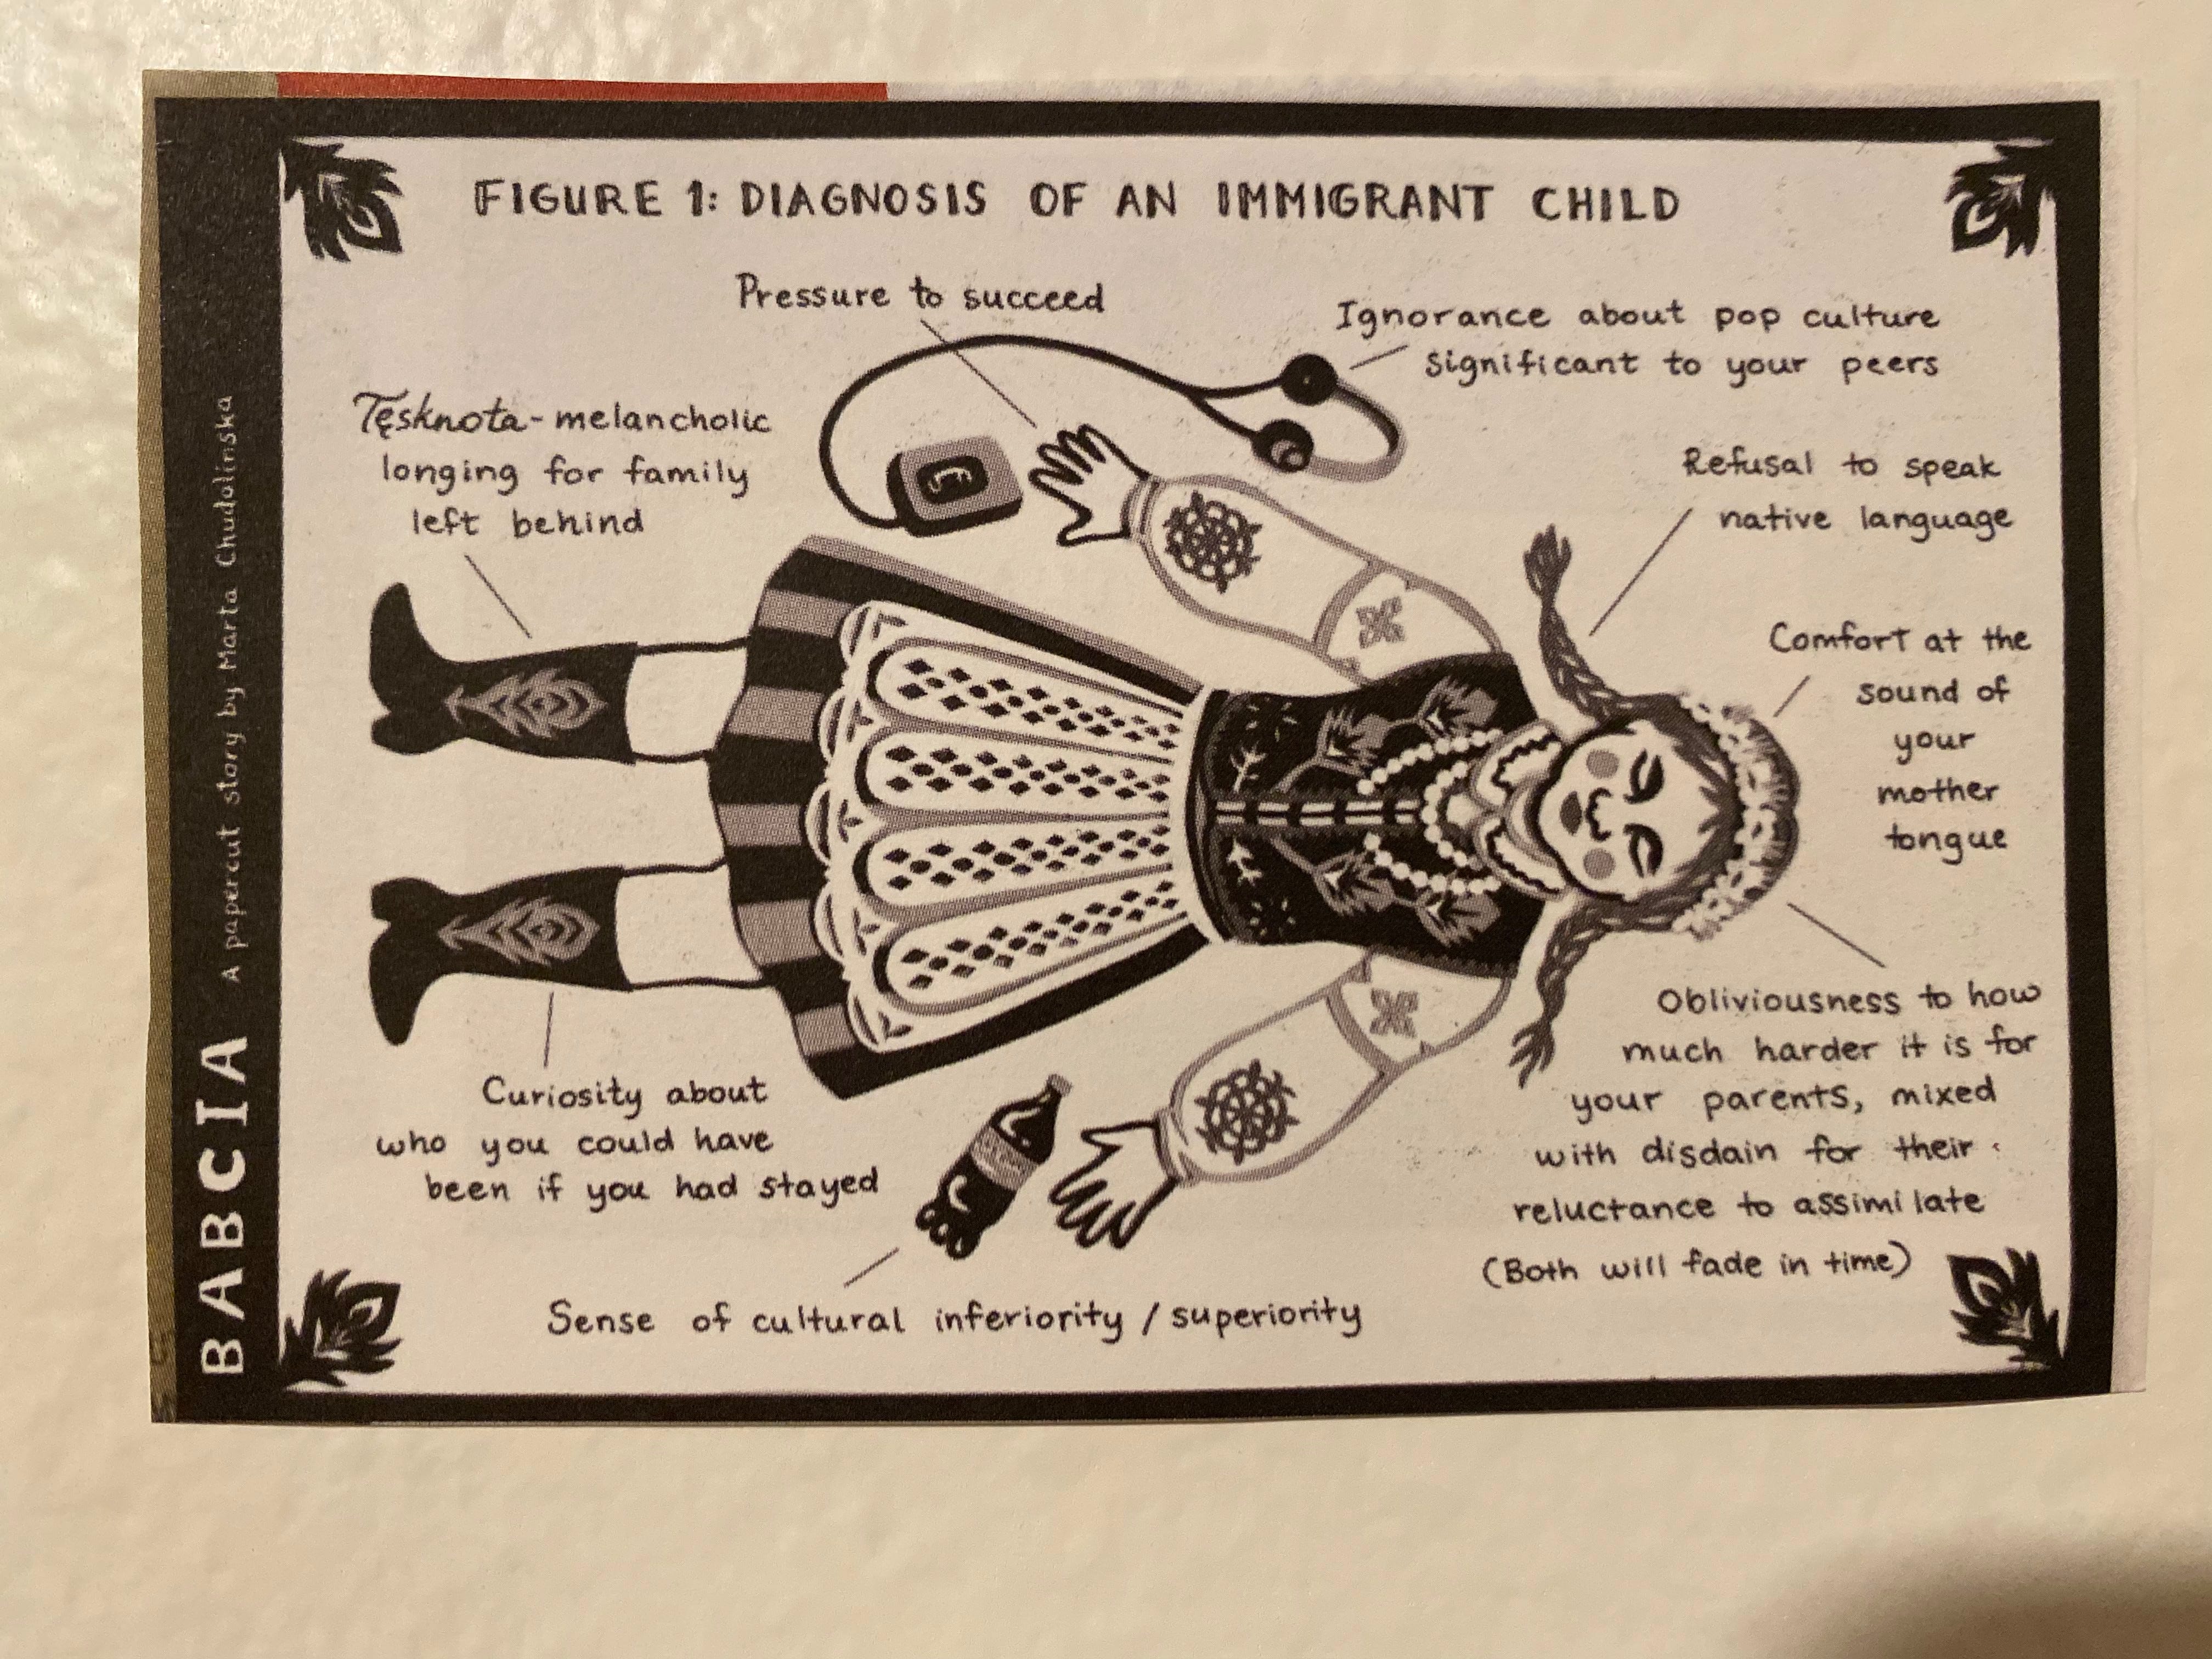 FIGURE 1: DIAGNOSIS OF AN IMMIGRANT CHILD
Pressure to succeed
Ignorance about pop culture
significant to your peers
Tęsknota - melancholic
longing for family
left behind
Refusal to speak
native language
Comfort at the
sound of
your
mother
tongue
Obliviousness to how
much harder it is for
your parents, mixed
with disdain for their
reluctance to assimilate
(Both will fade in time)
Curiosity about
who you could have
been if you had stayed
Sense of cultural inferiority / superiority
BABCIA A papercut story by Marta Chudolinska